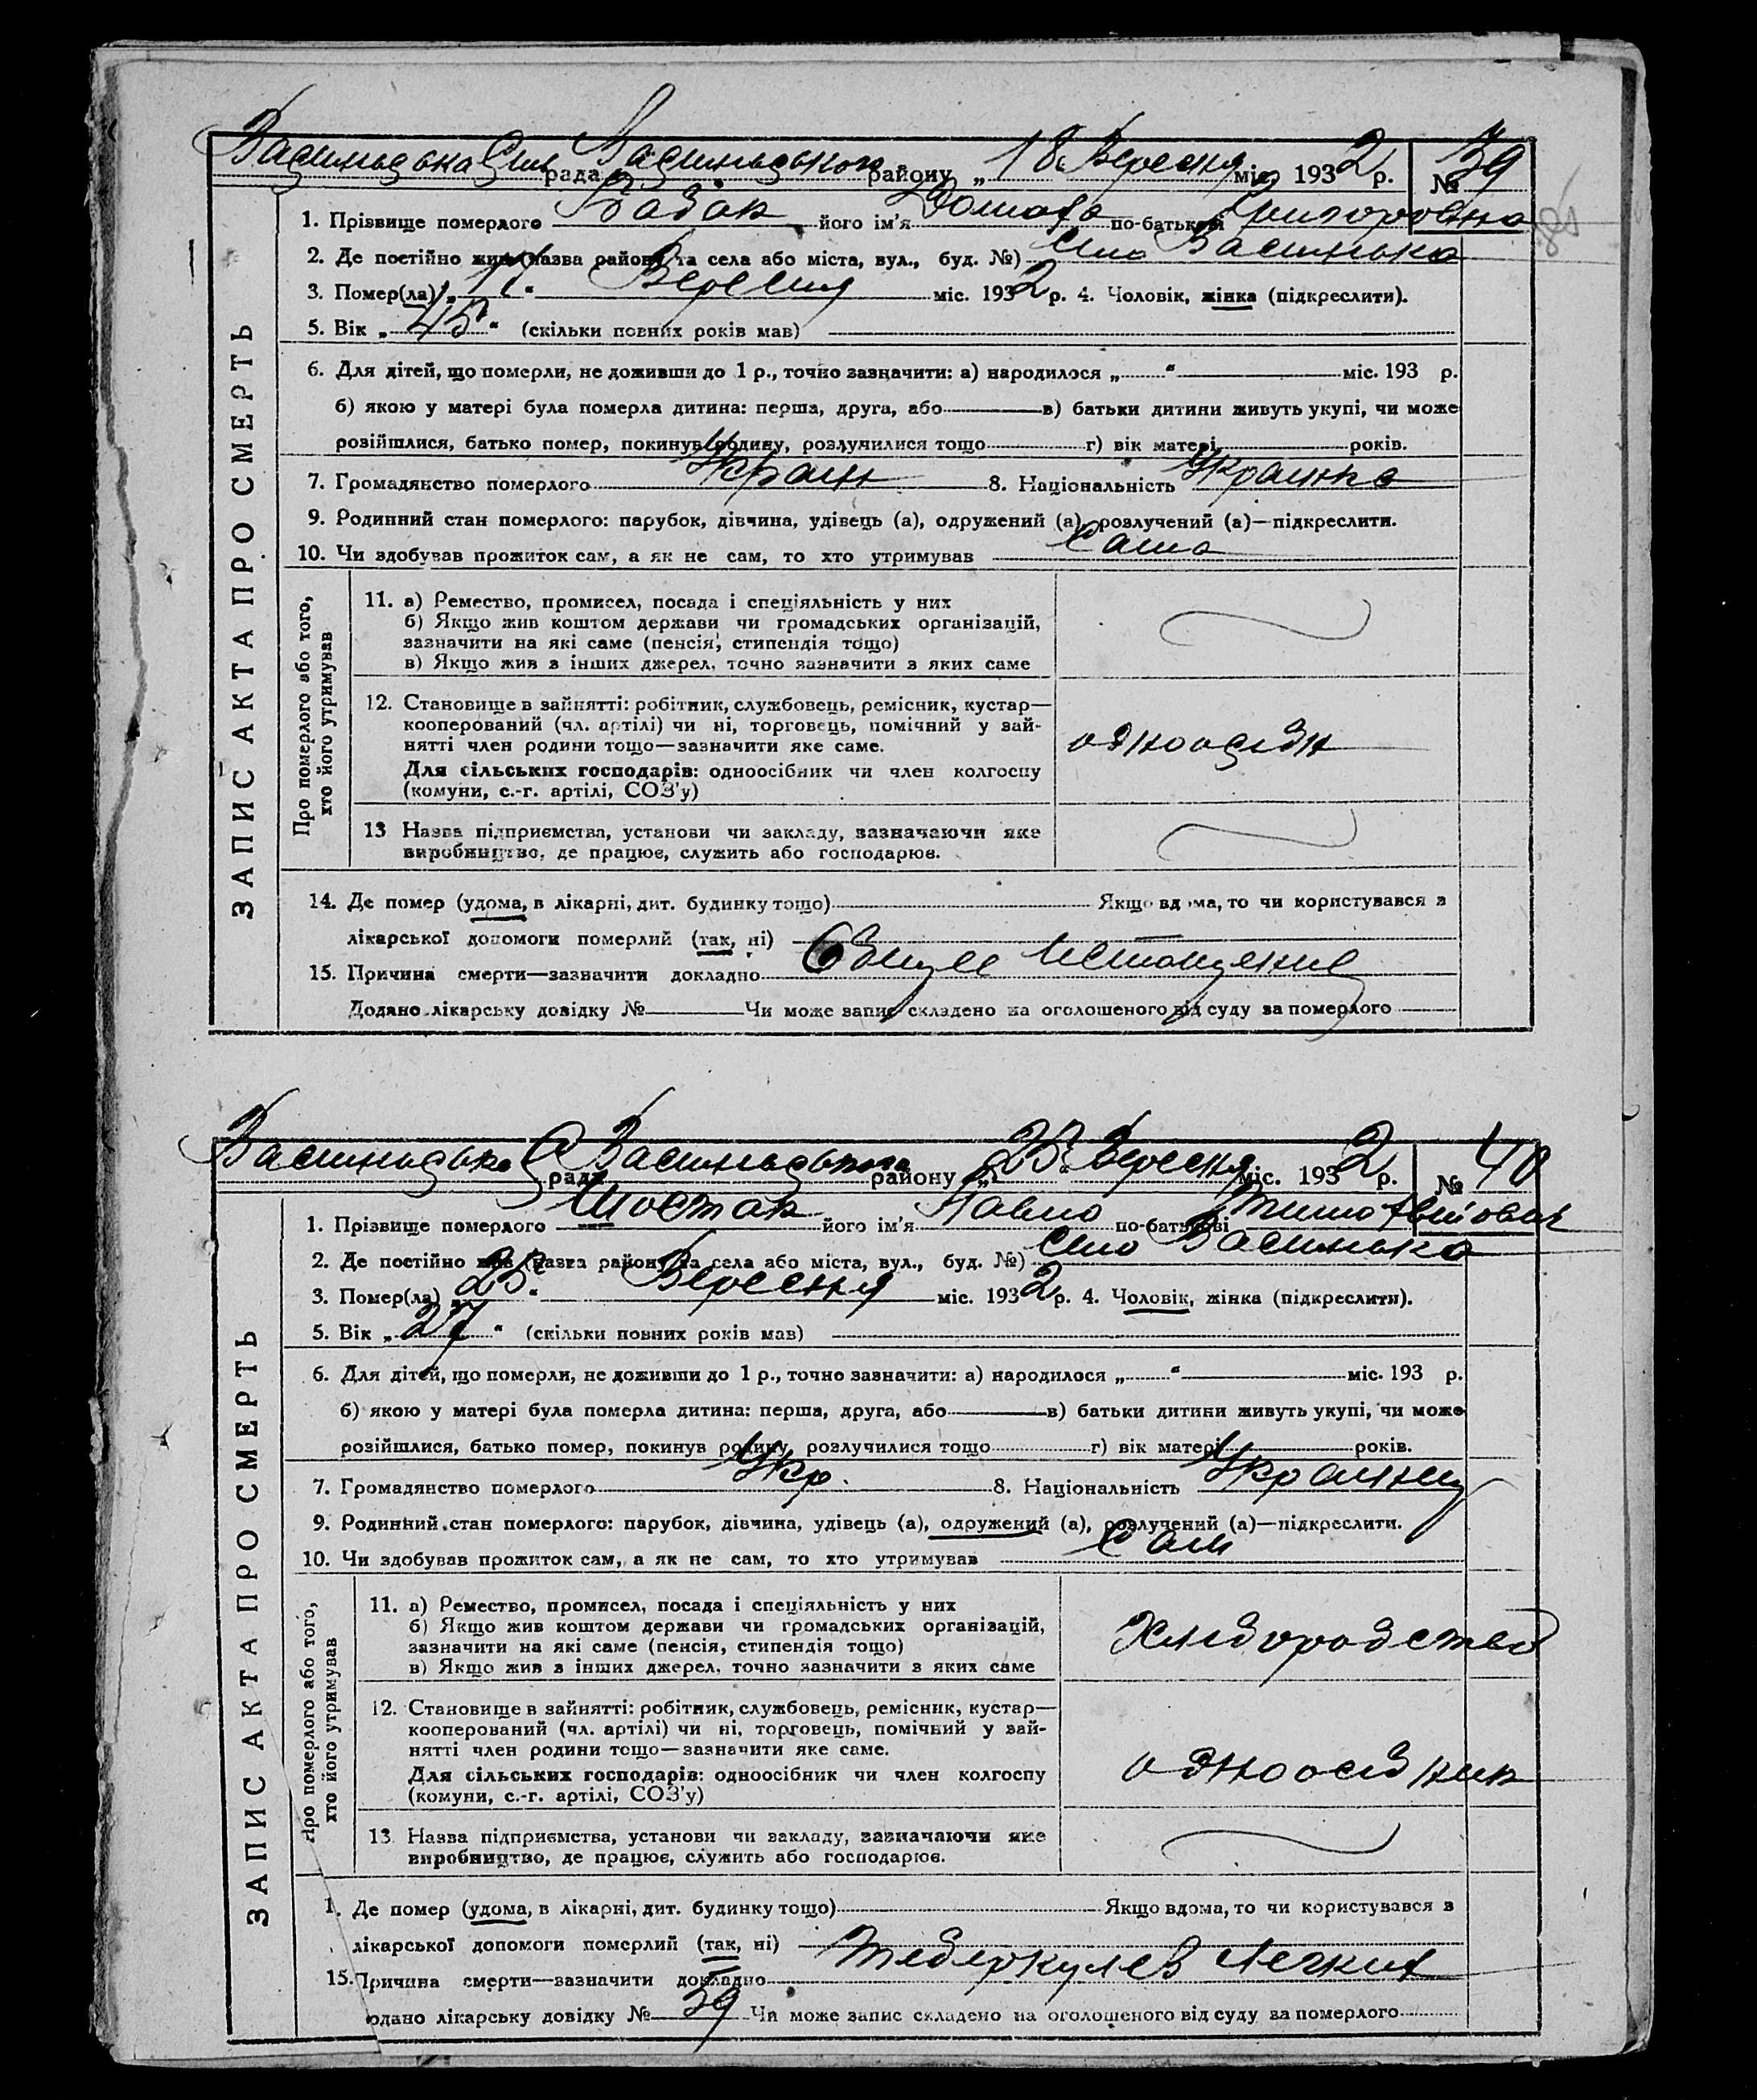 Васильцька Сіл рада Васильцького району „18„ Вересня міс. 1932 р. № 39
1. Прізвище померлого Бабак його ім'я Домаха по-батькові Григоровна
2. Де постійно жив (назва району та села або міста, вул., буд. №) село Василька
3. Помер(ла) „ “ Вересня міс. 1932 р. 4. Чоловік, жінка (підкреслити).
5. Вік „45“ (скільки повних років мав)
6. Для дітей, що померли, не доживши до 1 р., точно зазначити: а) народилося „ “ міс. 193 р.
б) якою у матері була померла дитина: перша, друга, або в) батьки дитини живуть укупі, чи може
розійшлися, батько помер, покинув родину, розлучилися тощо г) вік матері років.
7. Громадянство померлого Україн 8. Національність Українка
9. Родинний стан померлого: парубок, дівчина, удівець (а), одружений (а), розлучений (а)—підкреслити.
10. Чи здобував прожиток сам, а як не сам, то хто утримував Сама
ЗАПИС АКТА ПРО СМЕРТЬ
Про померлого або того,
хто його утримував
11. а) Ремество, промисел, посада і спеціяльність у них
б) Якщо жив коштом держави чи громадських організацій,
зазначити на які саме (пенсія, стипендія тощо)
в) Якщо жив з інших джерел, точно зазначити з яких саме
12. Становище в зайнятті: робітник, службовець, ремісник, кустар—
кооперований (чл. артілі) чи ні, торговець, помічний у зай-
нятті член родини тощо—зазначити яке саме.
Для сільських господарів: одноосібник чи член колгоспу
(комуни, с.-г. артілі, СОЗ'у)
одноосібн
13 Назва підприємства, установи чи закладу, зазначаючи яке
виробництво, де працює, служить або господарює.
14. Де помер (удома, в лікарні, дит. будинку тощо) Якщо вдома, то чи користувався з
лікарської допомоги померлий (так, ні)
15. Причина смерти—зазначити докладно Общее истощение
Додано лікарську довідку № Чи може запис складено на оголошеного від суду за померлого
Васильцька С рада Васильцького району „25„ Вересня міс. 1932 р. № 40
1. Прізвище померлого Шостак його ім'я Павло по-батькові Тимофійович
2. Де постійно жив (назва району та села або міста, вул., буд. №) село Василька
3. Помер(ла) „25“ Вересня міс. 1932 р. 4. Чоловік, жінка (підкреслити).
5. Вік „27“ (скільки повних років мав)
6. Для дітей, що померли, не доживши до 1 р., точно зазначити: а) народилося „ “ міс. 193 р.
б) якою у матері була померла дитина: перша, друга, або в) батьки дитини живуть укупі, чи може
розійшлися, батько помер, покинув родину, розлучилися тощо г) вік матері років.
7. Громадянство померлого Укр. 8. Національність Українец
9. Родинний стан померлого: парубок, дівчина, удівець (а), одружений (а), розлучений (а)—підкреслити.
10. Чи здобував прожиток сам, а як не сам, то хто утримував Сам
ЗАПИС АКТА ПРО СМЕРТЬ
Про померлого або того,
хто його утримував
11. а) Ремество, промисел, посада і спеціяльність у них
б) Якщо жив коштом держави чи громадських організацій,
зазначити на які саме (пенсія, стипендія тощо)
в) Якщо жив з інших джерел, точно зазначити з яких саме
Хлібородство
12. Становище в зайнятті: робітник, службовець, ремісник, кустар—
кооперований (чл. артілі) чи ні, торговець, помічний у зай-
нятті член родини тощо—зазначити яке саме.
Для сільських господарів: одноосібник чи член колгоспу
(комуни, с.-г. артілі, СОЗ'у)
одноосібник
13. Назва підприємства, установи чи закладу, зазначаючи яке
виробництво, де працює, служить або господарює.
1. Де помер (удома, в лікарні, дит. будинку тощо) Якщо вдома, то чи користувався з
лікарської допомоги померлий (так, ні)
15. Причина смерти—зазначити докладно Теберкулез легких
одано лікарську довідку № 39 Чи може запис складено на оголошеного від суду за померлого